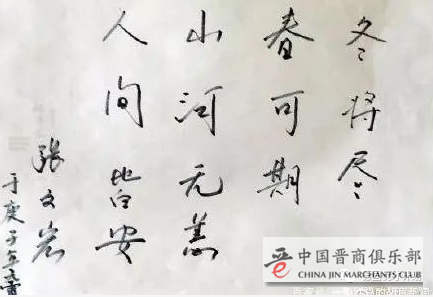 冬将尽
春可期
山河无恙
人间皆安
张文宏
于庚子
中国晋商俱乐部
CHINA JIN MERCHANTS CLUB